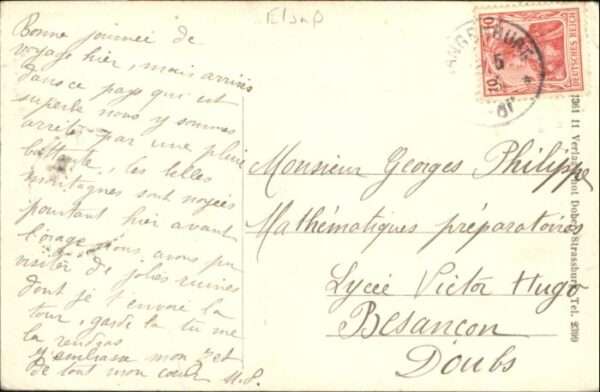 Elsaß
Bonne journée de
voyage hier, mais arrivés
dans ce pays qui est
superbe nous y sommes
arrêtés par une pluie
battante, les belles
montagnes sont noyées
pourtant hier avant
l'orage nous avons pu
visiter de jolies ruines
dont je t'envoie la
tour, garde la tu me
la rendras
J'embrasse mon
de tout mon cœur M.P.
10 DEUTSCHES REICH 10
5
Monsieur Georges Philippe
Mathématiques préparatoires
Lycée Victor Hugo
Besançon
Doubs
11 Verlag Dobel, Strassburg Tel.